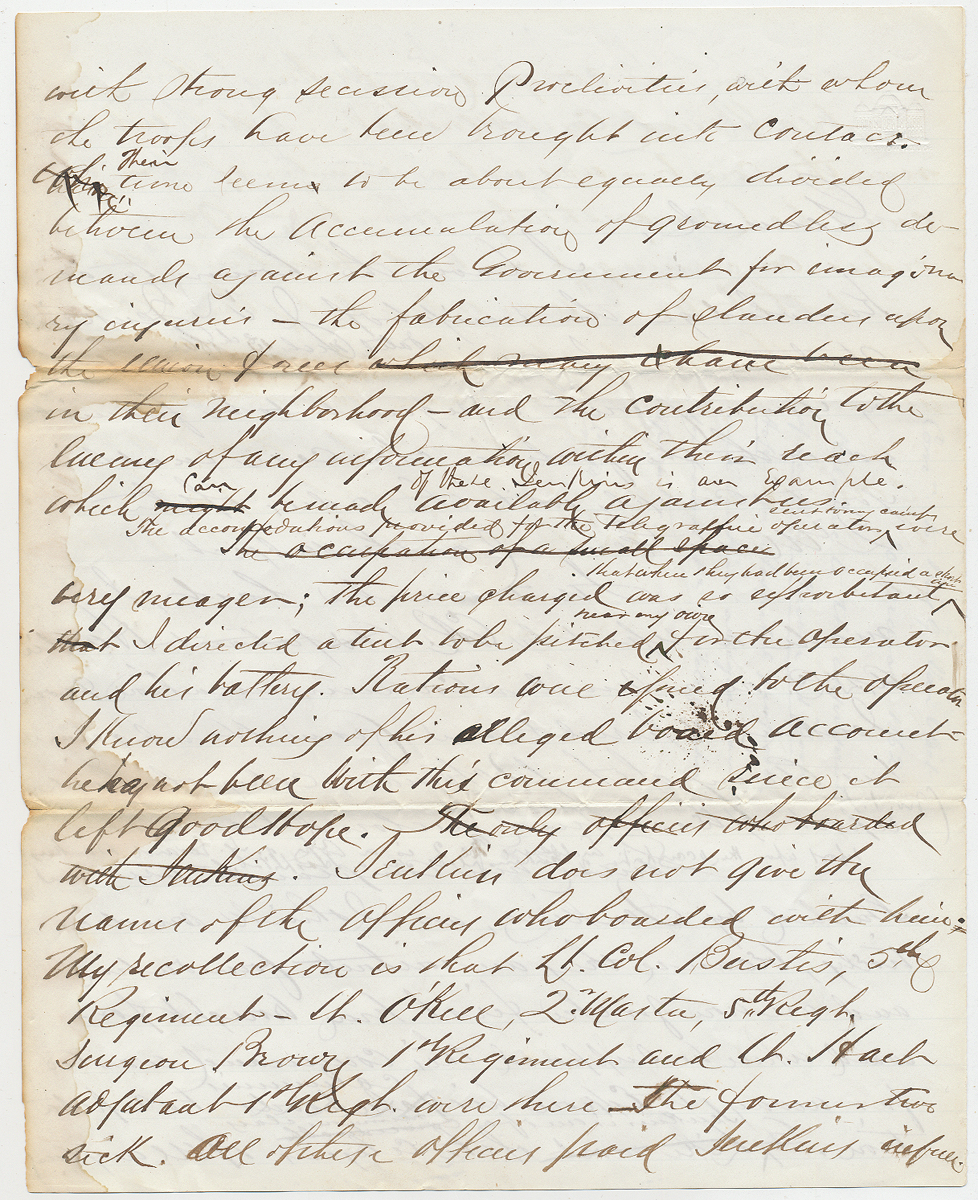 with strong secession Proclivities, with whom
the troops have been brought into contact.
Their
time seems to be about equally divided
between the accumulation of groundless de-
mands against the Government for imagina
ry injuries – the fabrication of slanders upon
the union forces which many have been
in their neighborhood – and the contribution to the
Enemy of any information within their reach
can of these Jenkins is an Example.
which might be made available against us.
sent to my camp
The accomodations provided for the telegraphic operator were
The occupation of a small space
that when they had been occupied a short
very meager; the price charged was so exhorbitant
near my own
that I directed a tent to be pitched for the operator
and his battery. Rations were issued to the operator
I know nothing of his alleged board account–
he has not been with this command since it
left Good Hope. The only officers who boarded
with Jenkins. Jenkins does not give the
names of the officers who boarded with him.
My recollection is that Lt. Col. Bustis, 5th
Regiment – Lt. O'Kell, 2r. Master, 5th Regt.
Surgeon Brown 1st Regiment and Lt. Hart
adjutant 1st Regt. were there – The former two
sick. All of these officers paid Jenkins